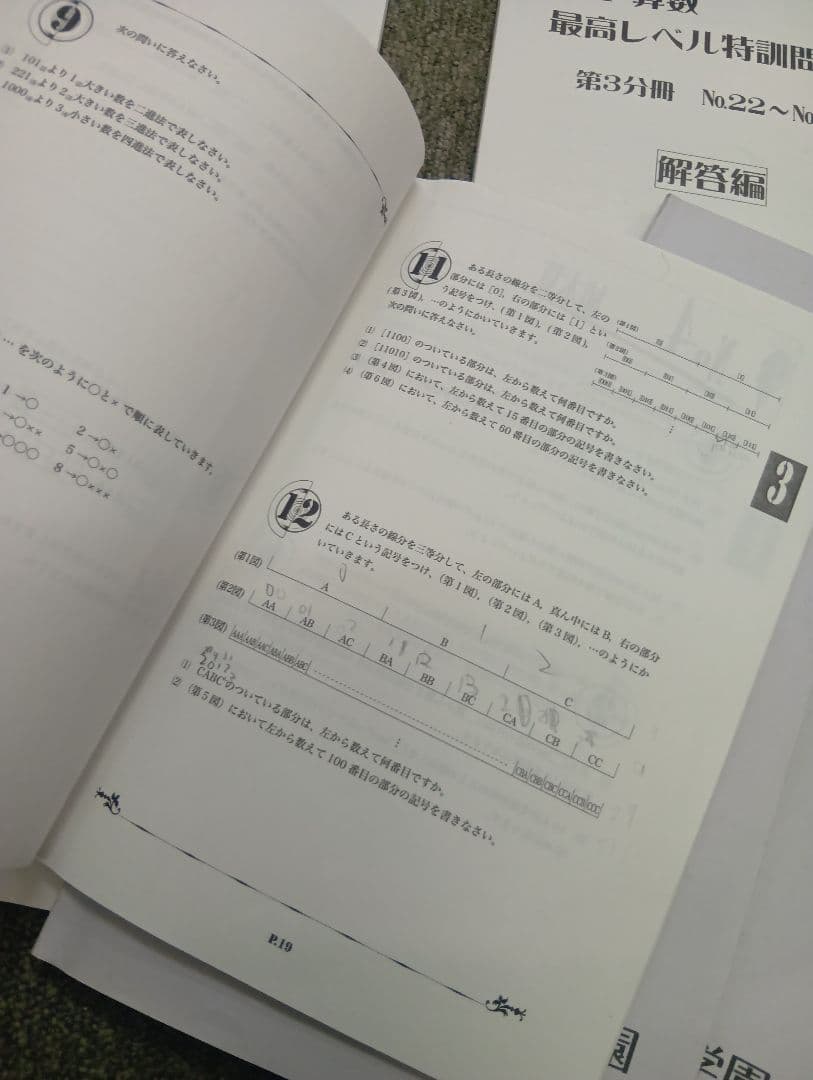 9
次の問いに答えなさい。
101₍₂₎より1₍₂₎大きい数を二進法で表しなさい。
221₍₃₎より2₍₃₎大きい数を三進法で表しなさい。
1000₍₄₎より3₍₄₎小さい数を四進法で表しなさい。
… を次のように○と×で順に表していきます。
1→○
2→○×
→○××
5→○×○
→○○○
8→○×××
算数
最高レベル特訓問
第3分冊 No.22～No
解答編
11
ある長さの線分を二等分して、左の
部分には [0]、右の部分には [1] とい
う記号をつけ、(第1図)、(第2図)、
(第3図)、…のようにかいていきます。
次の問いに答えなさい。
(第1図)
[0]
[1]
(第2図)
[00]
[01]
[10]
[11]
(第3図)
[000]
[001]
[010]
[011]
[100]
[101]
[110]
[111]
⋮
(1) [1100] のついている部分は、左から数えて何番目ですか。
(2) [11010] のついている部分は、左から数えて何番目ですか。
(3) (第4図) において、左から数えて15番目の部分の記号を書きなさい。
(4) (第6図) において、左から数えて60番目の部分の記号を書きなさい。
3
12
ある長さの線分を三等分して、左の部分にはA、真ん中にはB、右の部分
にはCという記号をつけ、(第1図)、(第2図)、(第3図)、…のようにか
いていきます。
(第1図)
A
B
C
0
1
2
(第2図)
AA
AB
AC
BA
BB
BC
CA
CB
CC
00
01
12
(第3図)
AAA AAB AAC ABA ABB ABC
CBA CBB CBC CCA CCB CCC
⋮
(1) CABCのついている部分は、左から数えて何番目ですか。
(2) (第5図) において左から数えて100番目の部分の記号を書きなさい。
P.19